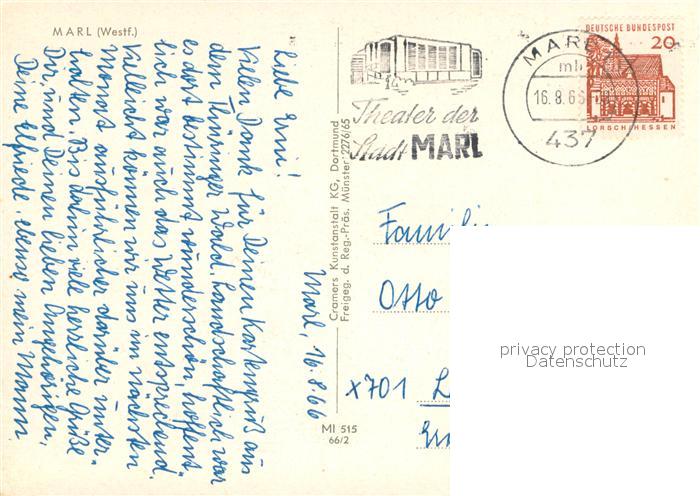 MARL (Westf.)
Marl, 16.8.66
Liebe Erni!
Vielen Dank für Deinen Kartengruß aus
dem Thüringer Wald. Landschaftlich war
es dort bestimmt wunderschön, hoffent-
lich war auch das Wetter entsprechend.
Vielleicht können wir uns im nächsten
Monat ausführlicher darüber unter-
halten. Bis dahin viele herzliche Grüße
Dir und Deinen lieben Angehörigen,
Deine Elfriede, ebenso mein Mann
Cramers Kunstanstalt KG, Dortmund
Freigeg. d. Reg.-Präs. Münster 2276/65
MI 515
66/2
Theater der
Stadt MARL
MARL
mb
16.8.66
437
DEUTSCHE BUNDESPOST
20
LORSCH/HESSEN
Familie
Otto
X701
privacy protection
Datenschutz